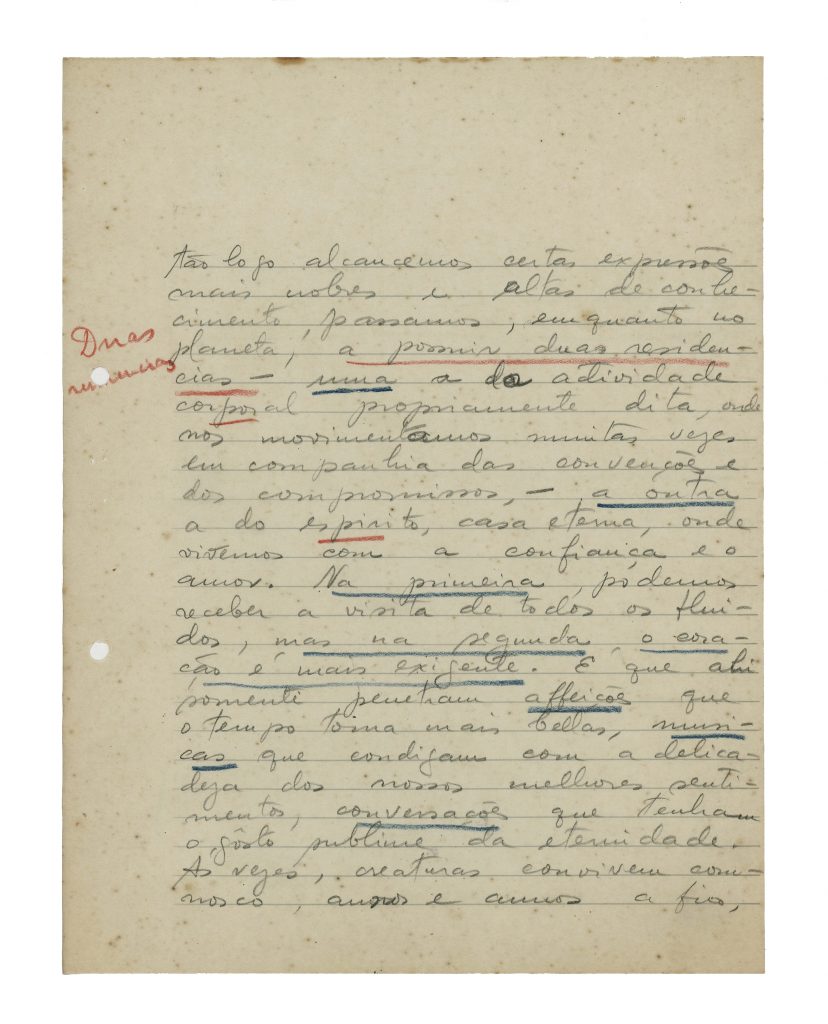 tão logo alcancemos certas expressões
mais nobres e altas de conhe-
cimento, passamos, emquanto no
Duas
planeta, a possuir duas residen-
cias - uma a da actividade
corporal propriamente dita, onde
nos movimentamos muitas vezes
em companhia das convenções e
dos compromissos, - a outra
a do espirito, casa eterna, onde
vivemos com a confiança e o
amor. Na primeira, podemos
receber a visita de todos os flui-
dos, mas na segunda, o cora-
ção é mais exigente. É que ahi
somente penetram affeições que
o tempo torna mais bellas, musi-
cas que condigam com a delica-
deza dos nossos melhores senti-
mentos, conversações que tenham
o gôsto sublime da eternidade.
As vezes, creaturas convivem com-
nosco, annos e annos a fios,